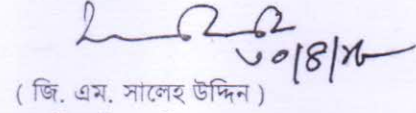 ৩০/৪/১৮
( জি. এম. সালেহ উদ্দিন )